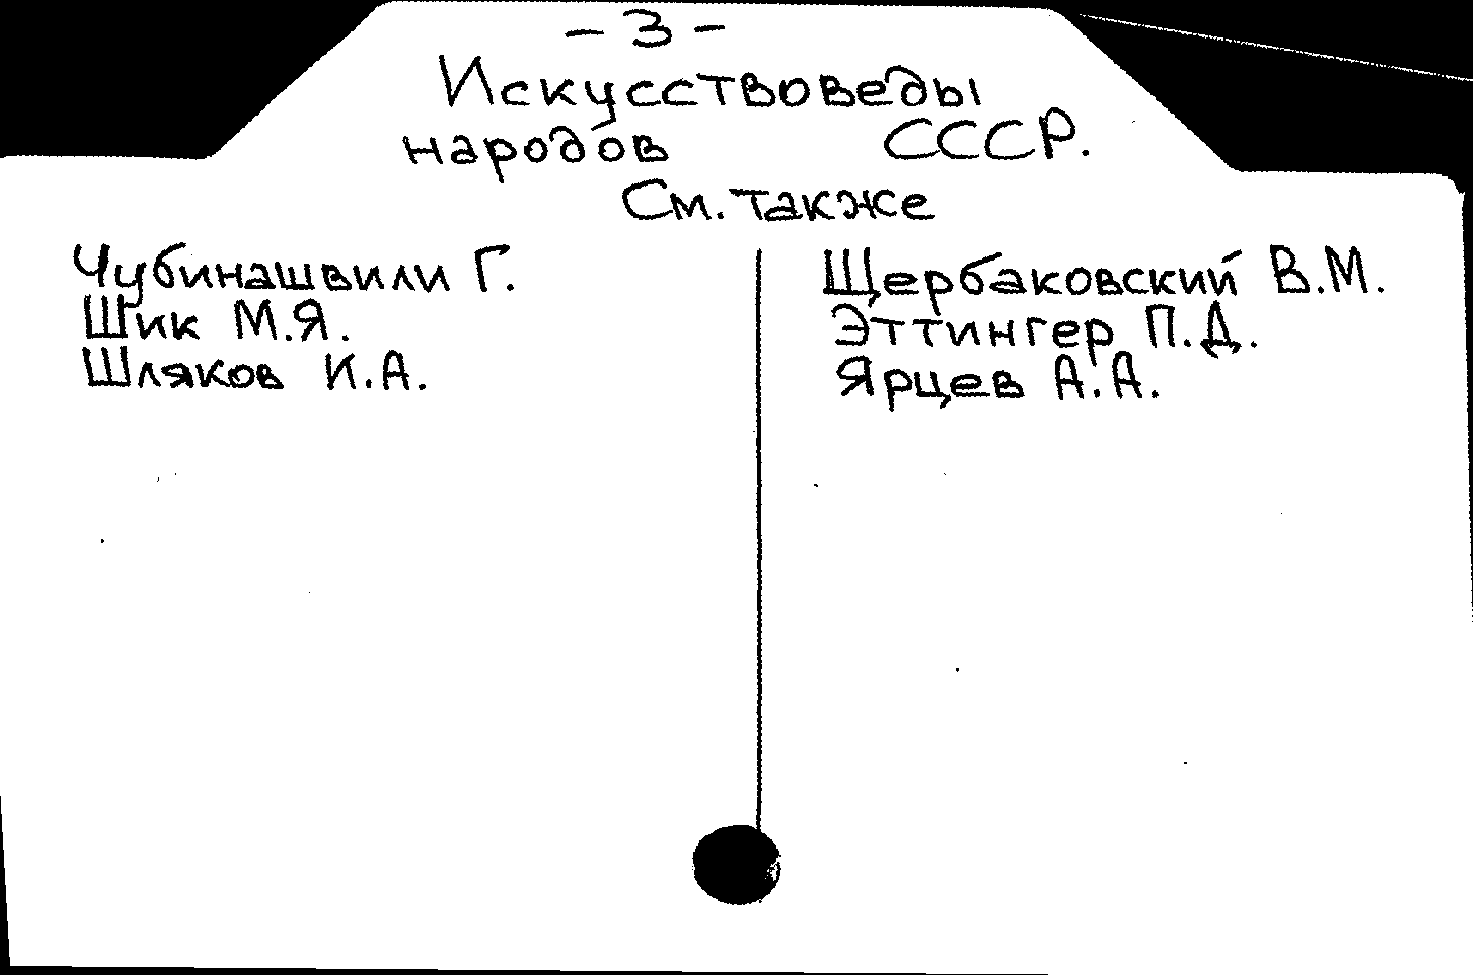 - 3 -
Искусствоведы
народов СССР.
См. также
Чубинашвили Г.
Шик М.Я.
Шляков И.А.
Щербаковский В.М.
Эттингер П.Д.
Ярцев А.А.